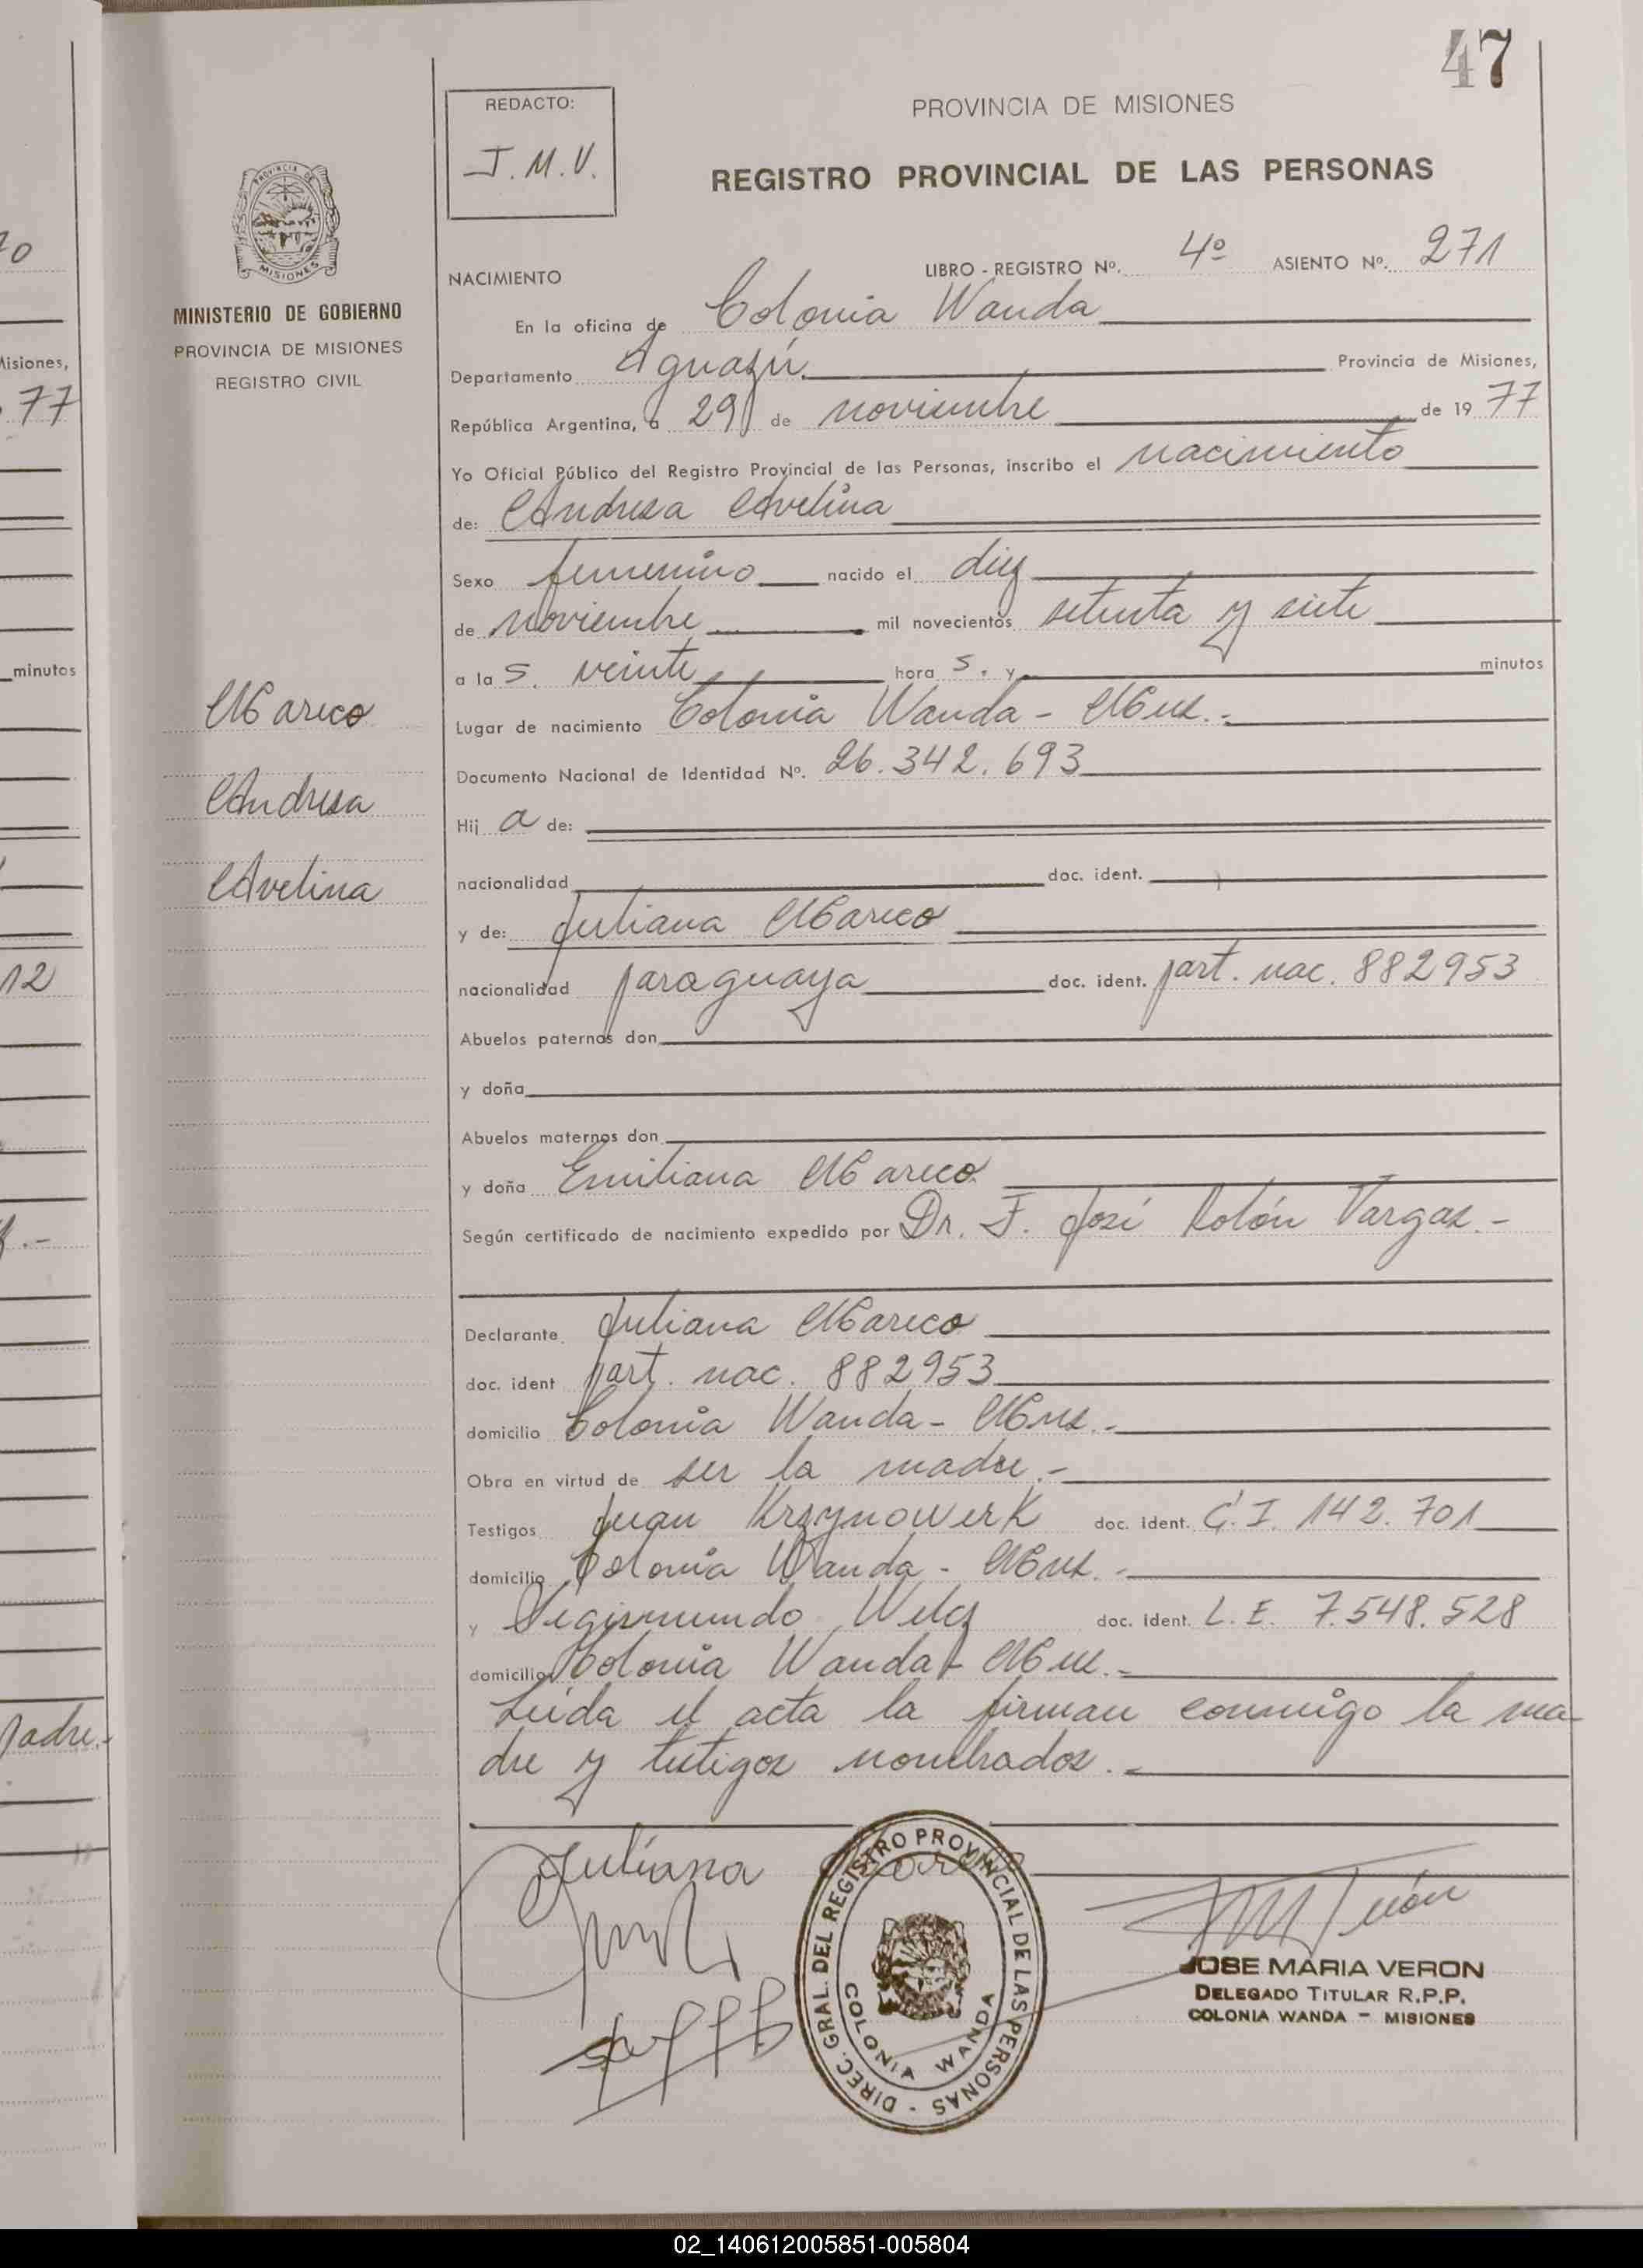 47
REDACTO:
J. M. V.
PROVINCIA DE MISIONES
REGISTRO PROVINCIAL DE LAS PERSONAS
PROVINCIA DE
MISIONES
MINISTERIO DE GOBIERNO
PROVINCIA DE MISIONES
REGISTRO CIVIL
Mareco
Andresa
Avelina
NACIMIENTO LIBRO - REGISTRO Nº. 4º ASIENTO Nº. 271
En la oficina de Colonia Wanda
Departamento Iguazú Provincia de Misiones,
República Argentina, a 29 de noviembre de 1977
Yo Oficial Público del Registro Provincial de las Personas, inscribo el nacimiento
de: Andresa Avelina
Sexo femenino nacido el diez
de noviembre mil novecientos setenta y siete
a la s. veinte hora s. y minutos
Lugar de nacimiento Colonia Wanda - Mnes.-
Documento Nacional de Identidad Nº. 26.342.693
Hij a de:
nacionalidad doc. ident.
y de: Juliana Mareco
nacionalidad paraguaya doc. ident. part. nac. 882953
Abuelos paternos don
y doña
Abuelos maternos don
y doña Emiliana Mareco
Según certificado de nacimiento expedido por Dr. F. José Rolón Vargas.-
Declarante Juliana Mareco
doc. ident part. nac. 882953
domicilio Colonia Wanda - Mnes.-
Obra en virtud de ser la madre.-
Testigos Juan Krzynowerk doc. ident. C.I. 142.701
domicilio Colonia Wanda - Mnes.-
y Segismundo Welz doc. ident. L.E. 7.548.528
domicilio Colonia Wanda - Mnes.-
Leida el acta la firman conmigo la ma-
dre y testigos nombrados.-
Juliana
DIREC. GRAL. DEL REGISTRO PROVINCIAL DE LAS PERSONAS -
COLONIA WANDA
JOSE MARIA VERON
DELEGADO TITULAR R.P.P.
COLONIA WANDA - MISIONES
Misiones,
77
minutos
12
padre.-
02_140612005851-005804